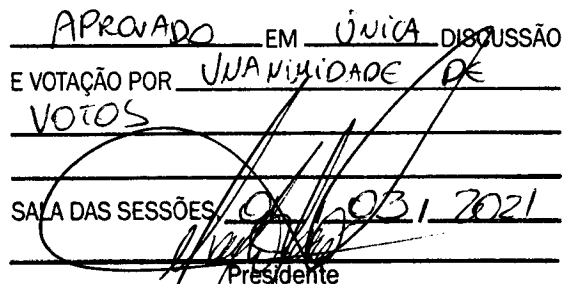 APROVADO EM ÚNICA DISCUSSÃO
E VOTAÇÃO POR UNANIMIDADE DE
VOTOS
SALA DAS SESSÕES, 03 / 2021
Presidente